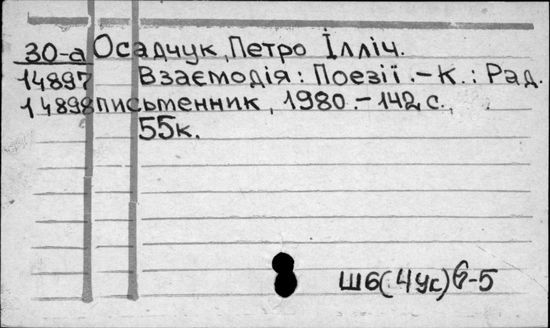 30-а Осадчук, Петро Ілліч.
14897 Взаємодія: Поезії. – К.: Рад.
14898 письменник, 1980. – 142 с.,
55к.
Ш6(4Ук)6-5